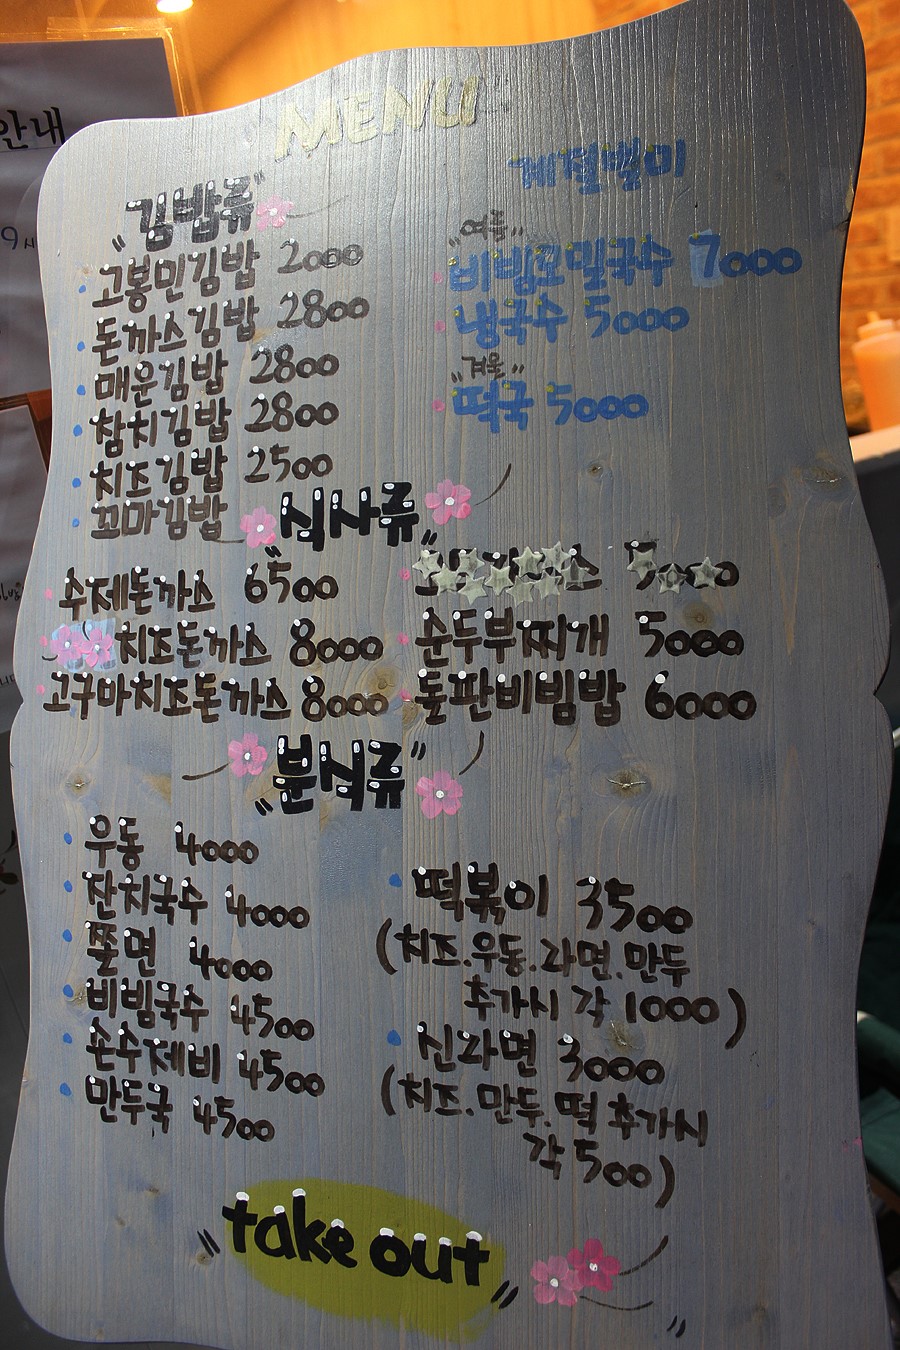 안내
MENU
"김밥류"
고봉민김밥 2000
돈까스김밥 2800
매운김밥 2800
참치김밥 2800
치즈김밥 2500
꼬마김밥
계절별미
"여름"
비빔모밀국수 7000
냉국수 5000
"겨울"
떡국 5000
"식사류"
수제돈까스 6500
치즈돈까스 8000
고구마치즈돈까스 8000
5000
순두부찌개 5000
돌판비빔밥 6000
"분식류"
우동 4000
잔치국수 4000
쫄면 4000
비빔국수 4500
손수제비 4500
만두국 4500
떡볶이 3500
(치즈.우동.라면.만두
추가시 각 1000)
신라면 3000
(치즈.만두.떡 추가시
각 500)
"take out"